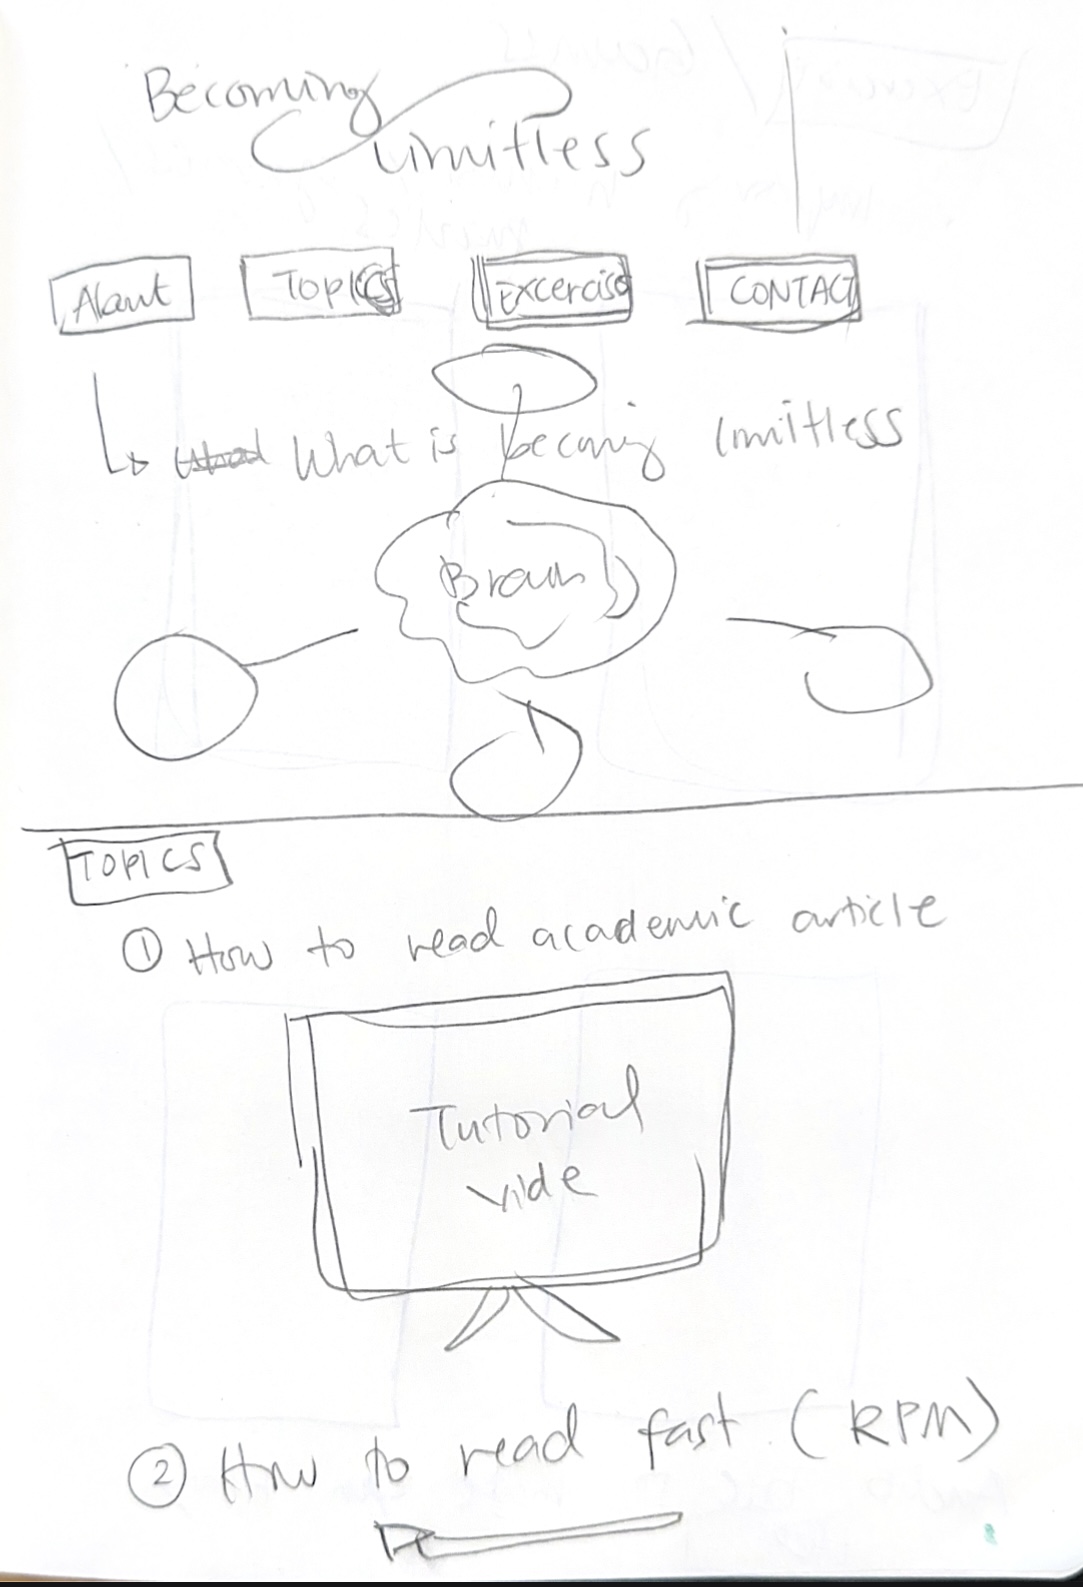 Becoming
Limitless
About Topics Excercise CONTACT
What is becoming limitless
Brain
TOPICS
① How to read academic article
Tutorial
vide
② How to read fast (RPM)